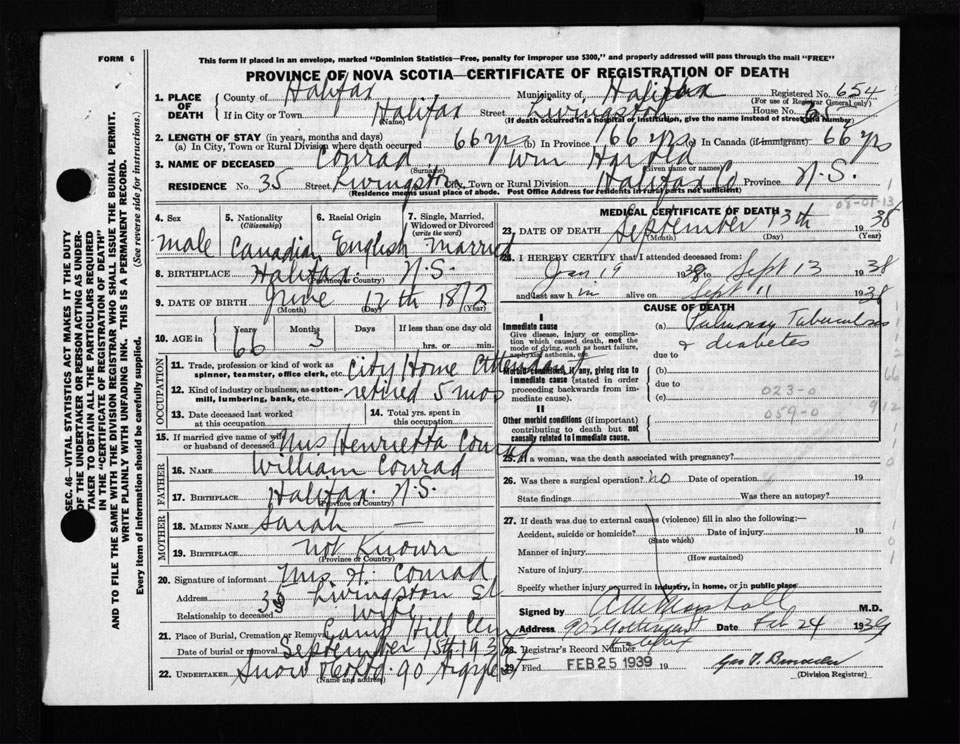 FORM 6
This form if placed in an envelope, marked "Dominion Statistics—Free, penalty for improper use $300," and properly addressed will pass through the mail "FREE"
PROVINCE OF NOVA SCOTIA—CERTIFICATE OF REGISTRATION OF DEATH
1. PLACE OF DEATH
County of Halifax Municipality of Halifax Registered No. 654
(For use of Registrar General only)
If in City or Town Halifax Street Livingston House No.
(Name) (If death occurred in a hospital or institution, give the name instead of street and number)
2. LENGTH OF STAY (in years, months and days)
(a) In City, Town or Rural Division where death occurred 66 yrs (b) In Province 66 yrs (c) In Canada (if immigrant) 66 yrs
3. NAME OF DECEASED Conrad Wm Harold
(Surname) (Given name or names)
RESIDENCE No. 35 Street Livingston City, Town or Rural Division Halifax Co Province N.S.
(Residence means usual place of abode. Post Office Address for residents in rural parts not sufficient)
4. Sex 5. Nationality (Citizenship) 6. Racial Origin 7. Single, Married, Widowed or Divorced (write the word)
male Canadian English married
8. BIRTHPLACE Halifax. N.S.
(Province or Country)
9. DATE OF BIRTH June 12th 1872
(Month) (Day) (Year)
10. AGE in Years Months Days If less than one day old
66 3 hrs. or min.
OCCUPATION
11. Trade, profession or kind of work as spinner, teamster, office clerk, etc. City Home Attendant
12. Kind of industry or business, as cotton-mill, lumbering, bank, etc. retired 5 mos
13. Date deceased last worked at this occupation
14. Total yrs. spent in this occupation
15. If married give name of wife or husband of deceased Mrs Henrietta Conrad
FATHER
16. NAME William Conrad
17. BIRTHPLACE Halifax. N.S.
MOTHER
18. MAIDEN NAME Sarah —
19. BIRTHPLACE not Known
(Province or Country)
20. Signature of informant Mrs. H. Conrad
Address 35 Livingston St
Relationship to deceased Wife
21. Place of Burial, Cremation or Removal Camp Hill Cem
Date of burial or removal September 15th 1938
22. UNDERTAKER Snow & Co Ltd 90 Argyle St
(Name and address)
MEDICAL CERTIFICATE OF DEATH
08-01-13
23. DATE OF DEATH September 13th 1938
(Month) (Day) (Year)
24. I HEREBY CERTIFY that I attended deceased from:
Jan 19 1938 to Sept 13 1938
and last saw h im alive on Sept 11 1938
CAUSE OF DEATH
I
Immediate cause
Give disease, injury or complication which caused death, not the mode of dying, such as heart failure, asphyxia, asthenia, etc.
(a) Pulmonary Tuberculosis
& diabetes
due to
Morbid conditions, if any, giving rise to immediate cause (stated in order proceeding backwards from immediate cause).
(b)
due to
(c)
023-0
059-0
II
Other morbid conditions (if important) contributing to death but not causally related to immediate cause.
25. If a woman, was the death associated with pregnancy?
26. Was there a surgical operation? no Date of operation 19
State findings Was there an autopsy?
27. If death was due to external causes (violence) fill in also the following:—
Accident, suicide or homicide? Date of injury 19
(State which)
Manner of injury
(How sustained)
Nature of injury
Specify whether injury occurred in industry, in home, or in public place
Signed by Marshall M.D.
Address Gottingen St Date Feb 24 1939
28. Registrar's Record Number
29. Filed FEB 25 1939 19
(Division Registrar)
SEC. 46—VITAL STATISTICS ACT MAKES IT THE DUTY OF THE UNDERTAKER OR PERSON ACTING AS UNDERTAKER TO OBTAIN ALL THE PARTICULARS REQUIRED IN THE "CERTIFICATE OF REGISTRATION OF DEATH" AND TO FILE THE SAME WITH THE DIVISION REGISTRAR WHO SHALL ISSUE THE BURIAL PERMIT.
WRITE PLAINLY WITH UNFADING INK. THIS IS A PERMANENT RECORD.
Every item of information should be carefully supplied. (See reverse side for instructions.)